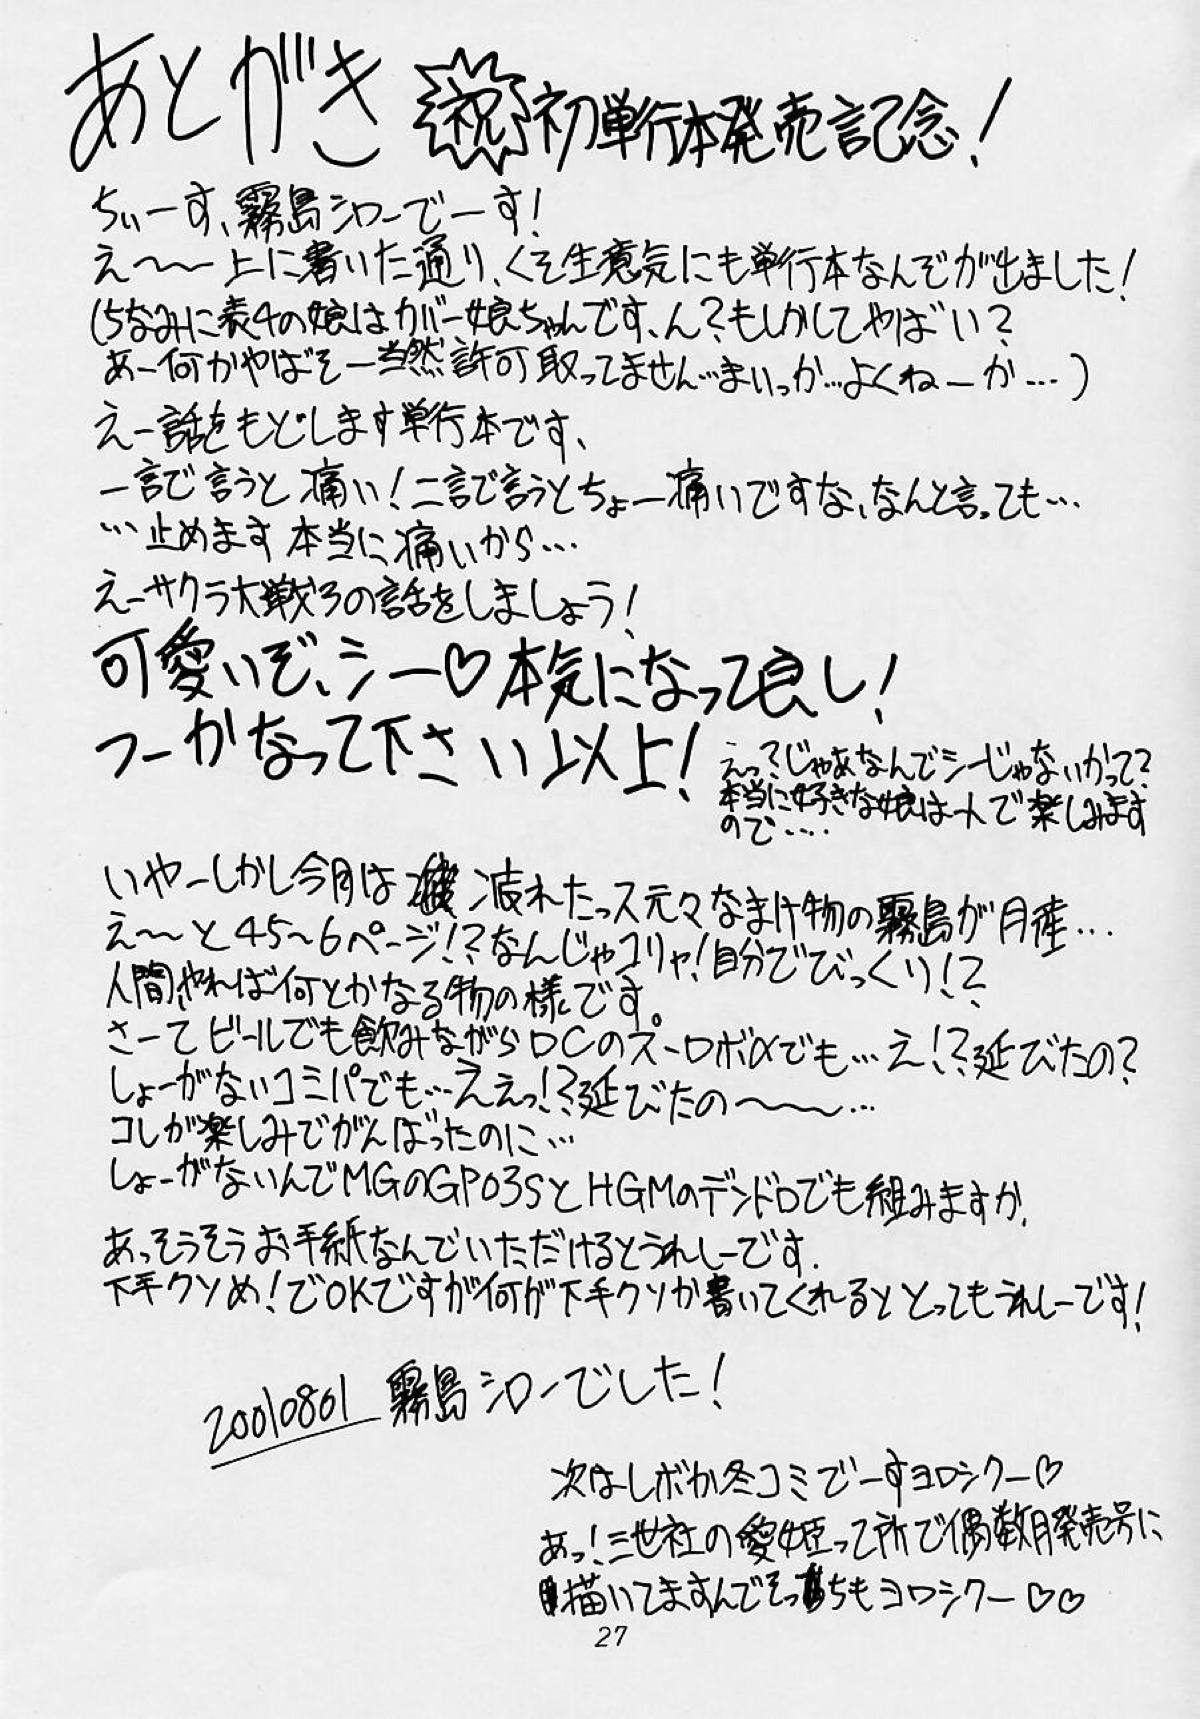 あとがき 祝 初単行本発売記念！
ちぃーす、霧島シローでーす！
え〜〜上に書いた通り、くそ生意気にも単行本なんぞが出ました！
(ちなみに表4の娘はカバー娘ちゃんです、ん？もしかしてやばい？
あー何かやばそー当然許可取ってません…まいっか…よくねーか…)
えー話をもどします単行本です、
一言で言うと痛い！二言で言うとちょー痛いですな、なんと言っても…
…止めます本当に痛いから…
えーサクラ大戦3の話をしましょう！
可愛いぞ、シー♡本気になって良し！
つーかなって下さい以上！
えっ？じゃあなんでシーじゃないかって？
本当に好きな娘は一人で楽しみます
ので‥‥
いやーしかし今月は疲れたっス元々なまけ物の霧島が月産…
え〜〜と45〜6ページ！？なんじゃコリャ！自分でびっくり！？
人間やれば何とかなる物の様です。
さーてビールでも飲みながらDCのスーロボαでも…え！？延びたの？
しょーがないコミパでも…ええっ！？延びたの〜〜〜…
コレが楽しみでがんばったのに…
しょーがないんでMGのGP03SとHGMのデンドロでも組みますか、
あっそうそうお手紙なんていただけるとうれしーです.
下手クソめ！でOKですが何が下手クソか書いてくれるととってもうれしーです！
20010801 霧島シローでした！
次はレボか冬コミでーすヨロシクー♡
あっ！三世社の愛姫って所で偶数月発売号に
描いてますんでそっちもヨロシクー♡♡
27